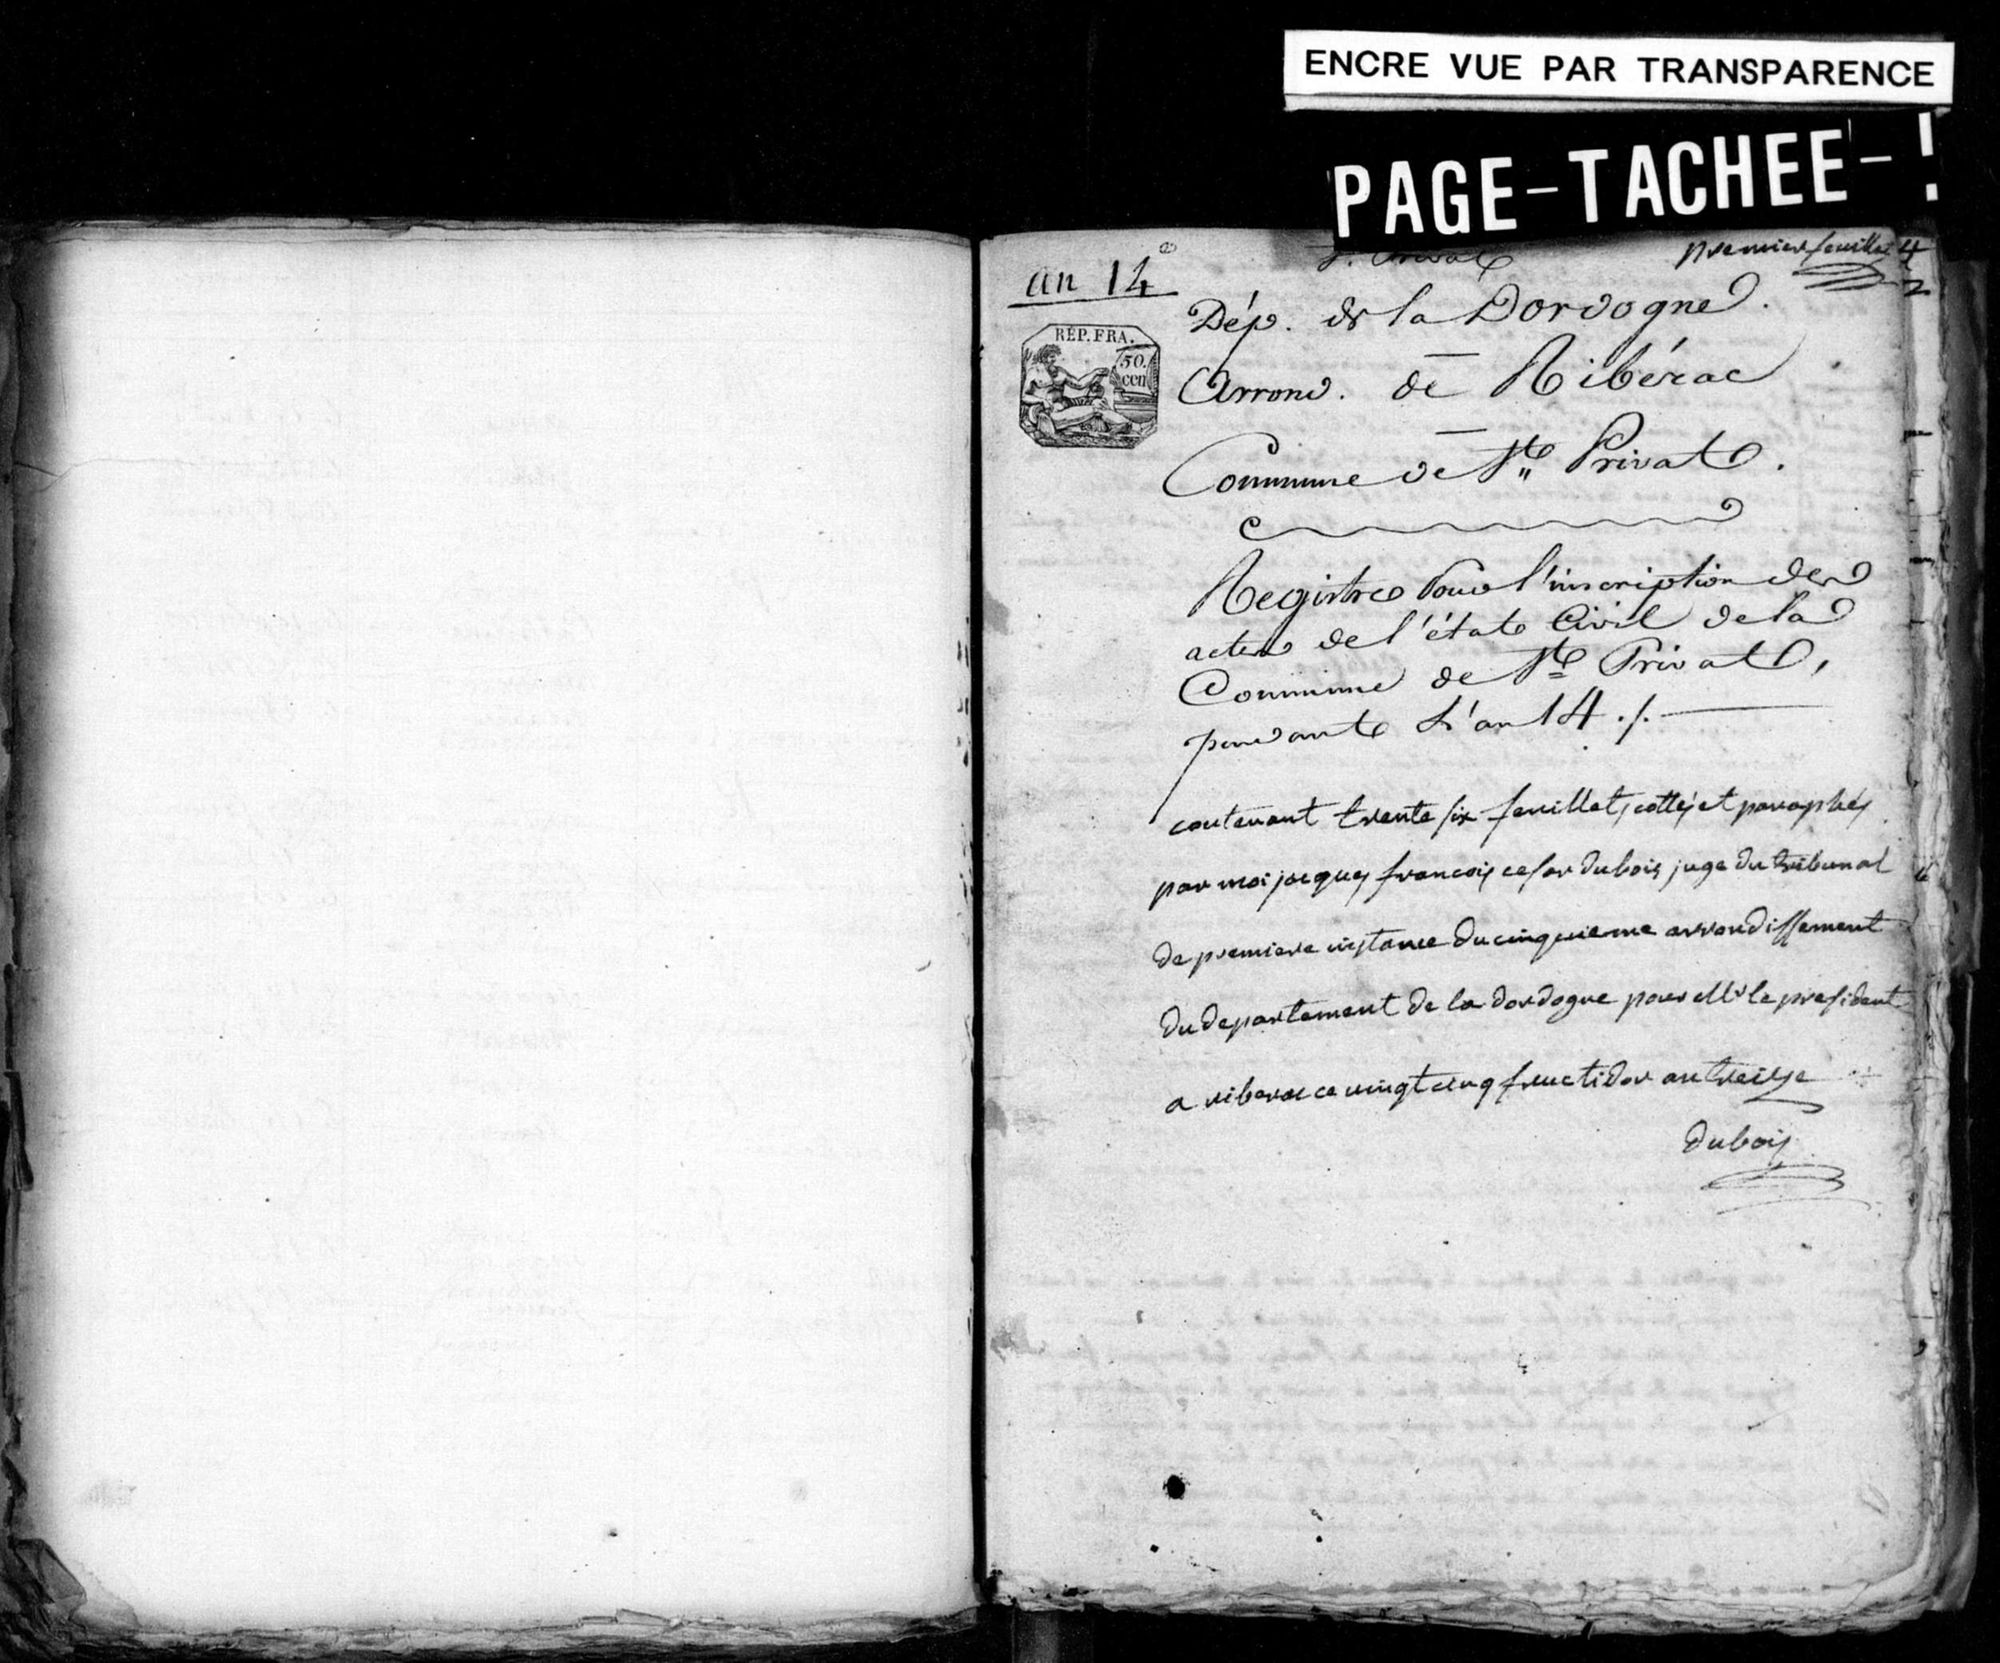 ENCRE VUE PAR TRANSPARENCE
PAGE-TACHEE-!
premier feuillet
an 14e
RÉP. FRA.
50.
cen
Dép. de la Dordogne.
Arrond. de Ribérac
Commune de St Privat.
Registre Pour l'inscription des
actes de l'état Civil de la
Commune de St Privat,
pendant L'an 14 ./.
contenant trente six feuillets cottés et paraphés
par moi jacques francois cesar dubois juge du tribunal
de premiere instance du cinquieme arrondissement
du departement de la dordogne pour Mr le president
a riberac ce vingt cinq fructidor an treize
dubois